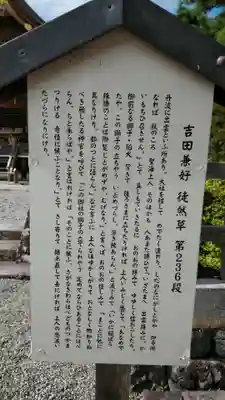 吉田兼好 徒然草 第236段
丹波に出雲と云ふ所あり。大社を移して めでたく造れり。しだのなにがしとかや しる所
なれば 秋のころ 聖海上人 そのほかも 人あまた誘ひて、「いざたまへ、出雲拝みに。か
いもちひ召させん。」とて 具しもていきたるに おのおの拝みて ゆゆしく信おこしたり。
御前なる獅子・狛犬 背きて 後ろさまに立ちたりければ 上人いみじく感じて「あなめで
たや。この獅子の立ちやう いとめづらし。深き故あらん。」と涙ぐみて「いかに殿ばら
殊勝のことは御覧じとがめずや。むげなり。」と言へば おのおの怪しみて「まことに他に
異なりけり。都のつとに語らん。」など言ふに 上人なほゆかしがりて おとなしく物知りぬ
べき顔したる神官を呼びて「この御社の獅子の立てられやう 定めてならひあることにはべ
らん。ちと承らばや。」と言はれければ「そのことに候ふ。さがなきわらはべどもの つかま
つりける 奇怪に候ふことなり。」とて さし寄りて 据ゑ直して去にければ 上人の感涙い
たづらになりにけり。